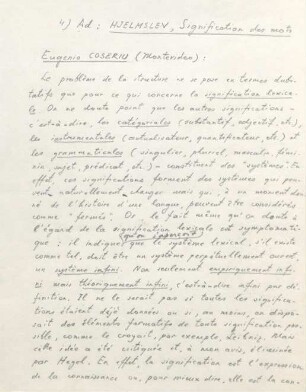 4) Ad: HJELMSLEV, Signification des mots
Eugenio COSERIU (Montevideo):
Le problème de la structure ne se pose en termes dubi-
tatifs que pour ce qui concerne la signification lexica-
le. On ne doute point que les autres significations –
c'est-à-dire, les catégorielles (substantif, adjectif, etc.),
les instrumentales (actualisateur, quantificateur, etc.) et
les grammaticales (singulier, pluriel, masculin, fémi-
nin, sujet, prédicat, etc.) – constituent des "systèmes". En
effet, ces significations forment des systèmes qui peu-
vent naturellement changer mais qui, à un moment don-
né de l'histoire d'une langue, peuvent être considérés
comme "fermés". Or, le fait même qu'on doute à
l'égard de la signification lexicale est symptomati-
que: il indique que le système lexical, s'il existe
comme tel, doit être un système perpétuellement ouvert,
un système infini. Non seulement empiriquement infi-
ni mais théoriquement infini, c'est-à-dire infini par dé-
finition. Il ne le serait pas si toutes les significa-
tions étaient déjà données ou si, au moins, on dispo-
sait des éléments formatifs de toute signification pos-
sible, comme le croyait, par exemple, Leibniz. Mais
cette idée a été critiquée et, à mon avis, éliminée
par Hegel. En effet, la signification est l'expression
de la connaissance ou, pour mieux dire, elle est la con-